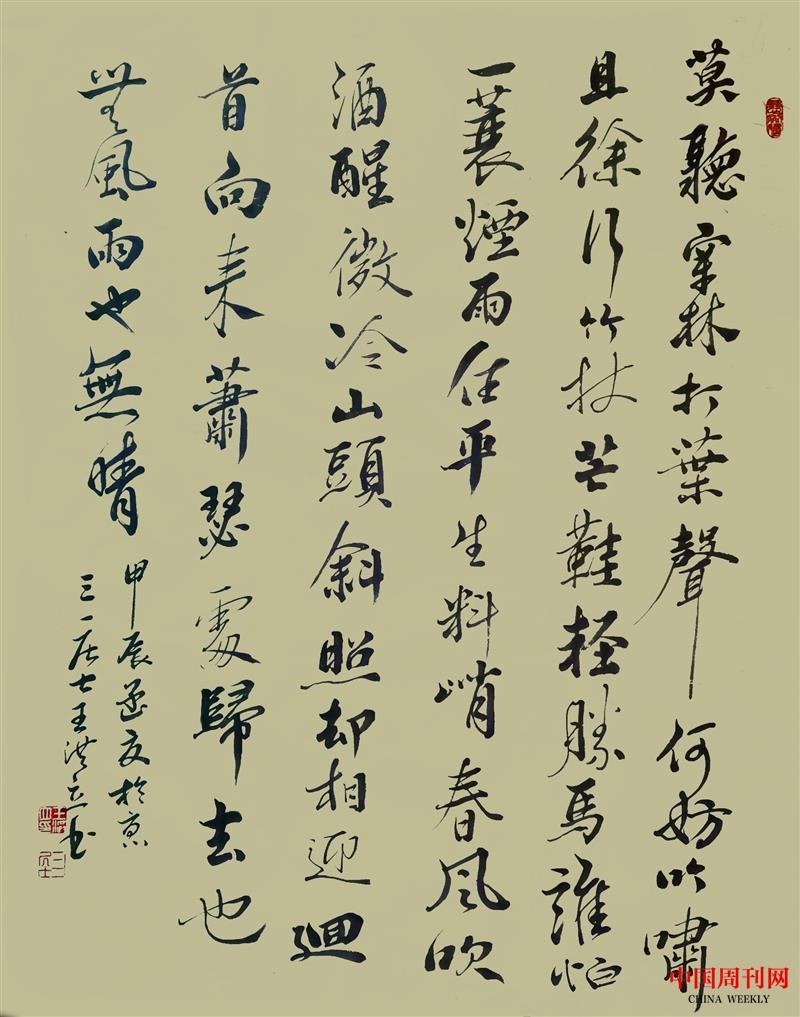 莫聽穿林打葉聲何妨吟嘯
且徐行竹杖芒鞋輕勝馬誰怕
一蓑煙雨任平生料峭春風吹
酒醒微冷山頭斜照却相迎迴
首向来蕭瑟處歸去也
無風雨也無晴
甲辰孟夏於京
三一居士王洪立书
中国周刊网
CHINA WEEKLY